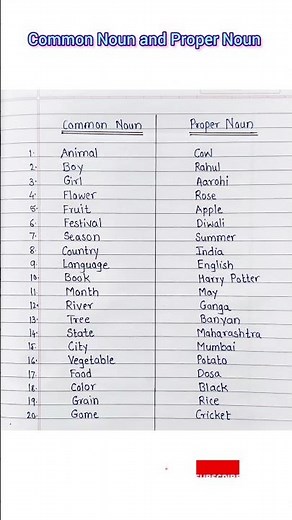 Common Noun and Proper Noun
Common Noun Proper Noun
1. Animal Cow
2. Boy Rahul
3. Girl Aarohi
4. Flower Rose
5. Fruit Apple
6. Festival Diwali
7. Season Summer
8. Country India
9. Language English
10. Book Harry Potter
11. Month May
12. River Ganga
13. Tree Banyan
14. State Maharashtra
15. City Mumbai
16. Vegetable Potato
17. Food Dosa
18. Color Black
19. Grain Rice
20. Game Cricket